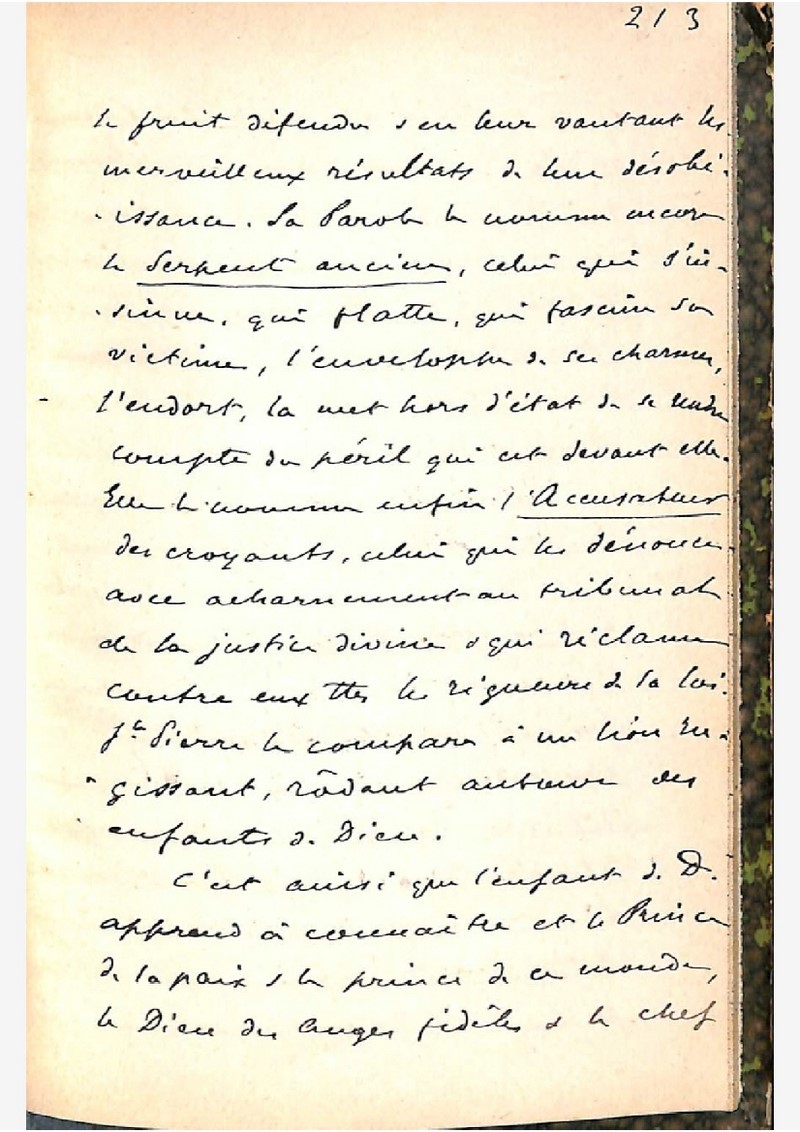 213
le fruit défendu & en leur vantant les
merveilleux résultats de leur désobé-
-issance. La Parole le nomme encore
le Serpent ancien, celui qui s'in-
-sinue, qui flatte, qui fascine sa
victime, l'enveloppe de ses charmes,
l'endort, la met hors d'état de se rendre
compte du péril qui est devant elle.
Elle le nomme enfin l'Accusateur
des croyants, celui qui les dénonce
avec acharnement au tribunal
de la justice divine & qui réclame
contre eux ttes les rigueurs de la loi.
St Pierre le compare à un lion ru-
-gissant, rôdant autour des
enfants de Dieu.
C'est ainsi que l'enfant de D.
apprend à connaître et le Prince
de la paix & le prince de ce monde,
le Dieu des Anges fidèles & le chef